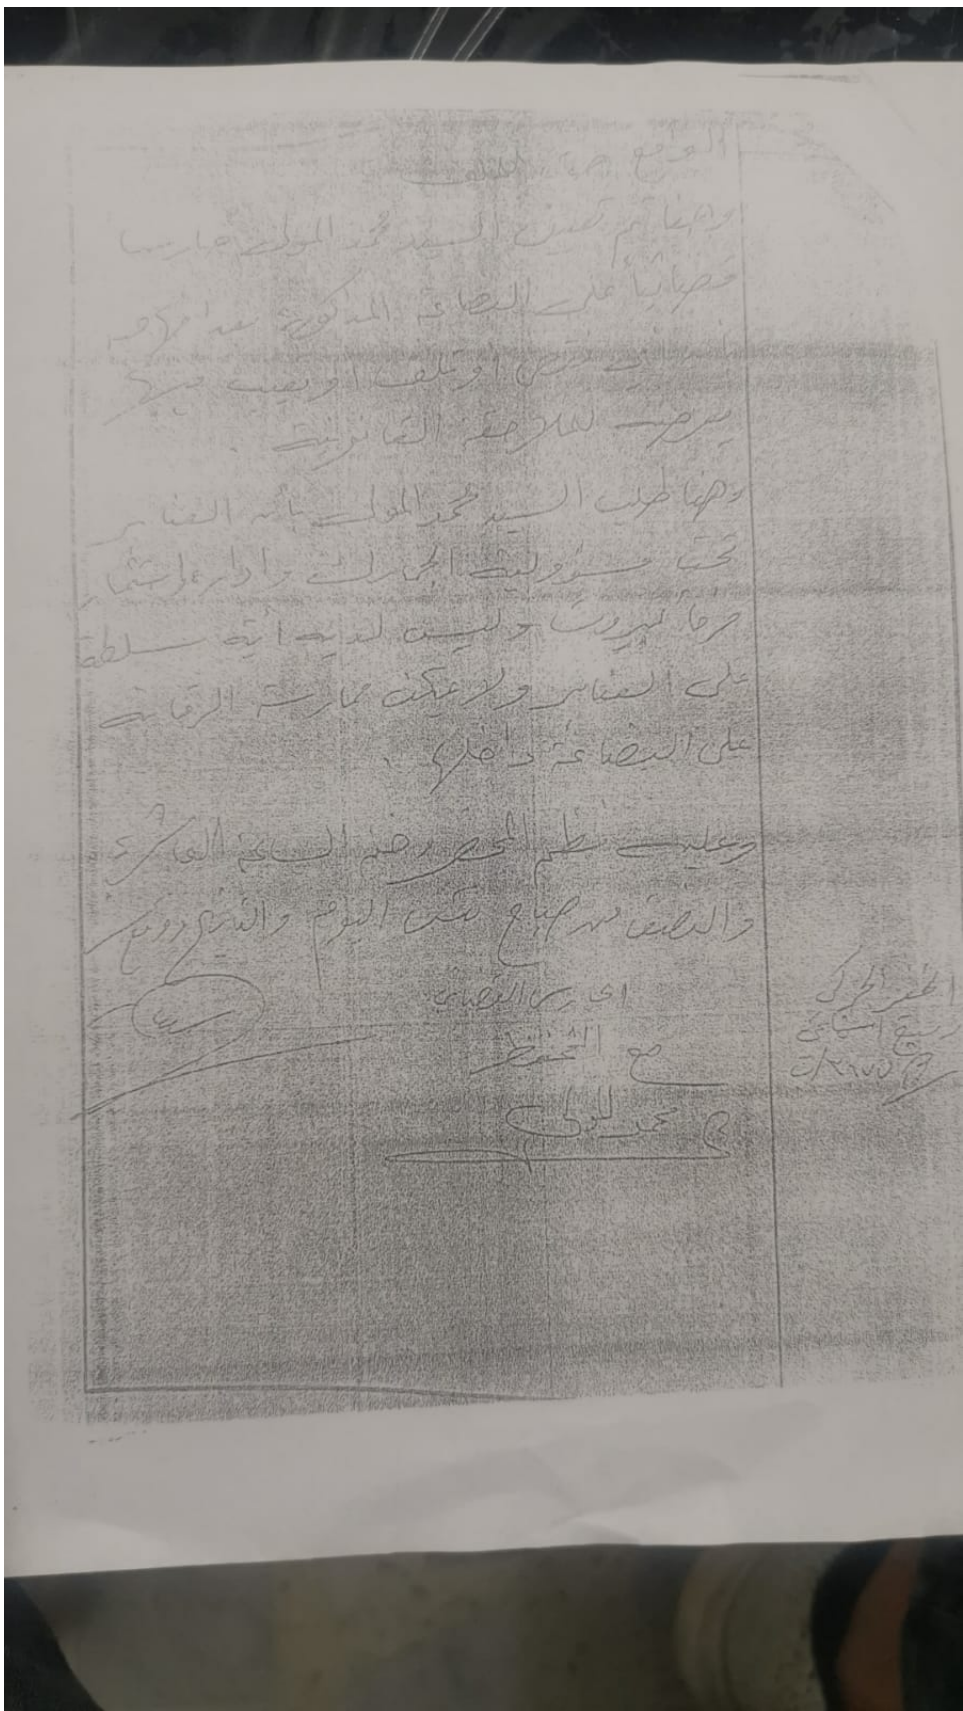 وهنا تم تعيين السيد محمد المولى حارسا
قضائيا على البضاعة المذكورة
أي نقص أو تلف أو يعيب فيها
يعرضه للملاحقة القانونية
وهنا طلب السيد محمد المولى بأن العنابر
تحت مسؤولية الجمارك وإدارة واستثمار
مرفأ بيروت وليس لديه أية سلطة
على العنابر ولا يمكنه ممارسة الرقابة
على البضاعة داخلها .
وعليه نظم المحضر وختم الساعة العاشرة
والنصف من صباح نفس اليوم والتاريخ
الحارس القضائي
الخفير الجمركي
مع التحفظ
محمد المولى